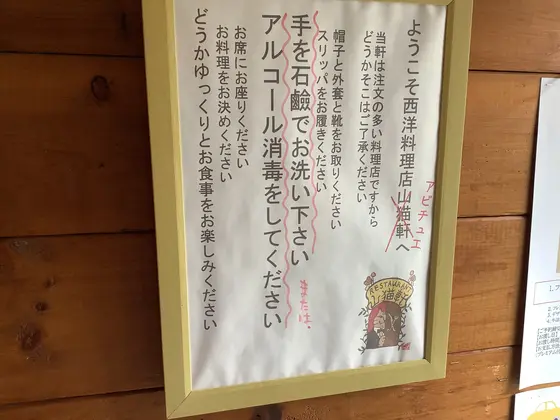 ようこそ西洋料理店山猫軒へ
アビチュエ
当軒は注文の多い料理店ですから
どうかそこはご了承ください
帽子と外套と靴をお取りください
スリッパをお履きください
手を石鹼でお洗い下さい
または、
アルコール消毒をしてください
お席にお座りください
お料理をお決めください
どうかゆっくりとお食事をお楽しみください
RESTAURANT
山猫軒